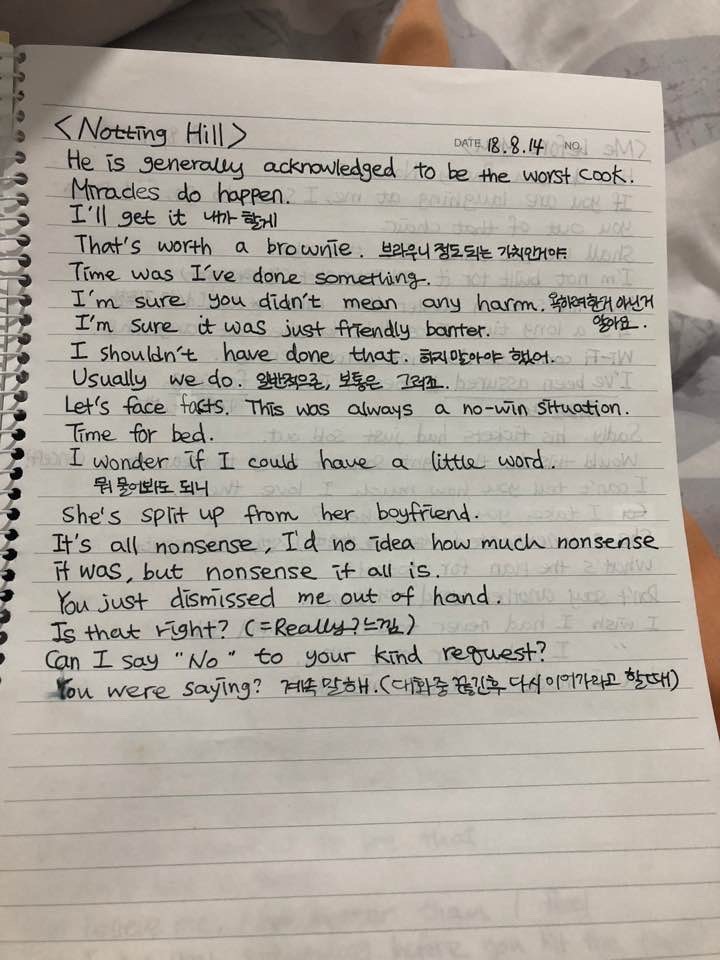 <Notting Hill>
DATE. 18.8.14 NO.
He is generally acknowledged to be the worst cook.
Miracles do happen.
I'll get it 내가 할게
That's worth a brownie. 브라우니 정도되는 가치인거야.
Time was I've done something.
I'm sure you didn't mean any harm. 욕하려한거 아닌거
알아요.
I'm sure it was just friendly banter.
I shouldn't have done that. 하지말아야 했어.
Usually we do. 일반적으론, 보통은 그렇죠.
Let's face facts. This was always a no-win situation.
Time for bed.
I wonder if I could have a little word.
뭐 물어봐도 되니
She's split up from her boyfriend.
It's all nonsense, I'd no idea how much nonsense
it was, but nonsense it all is.
You just dismissed me out of hand.
Is that right? (=Really? 느낌)
Can I say "No" to your kind request?
You were saying? 계속 말해. (대화중 끊긴후 다시 이어가라고 할때)